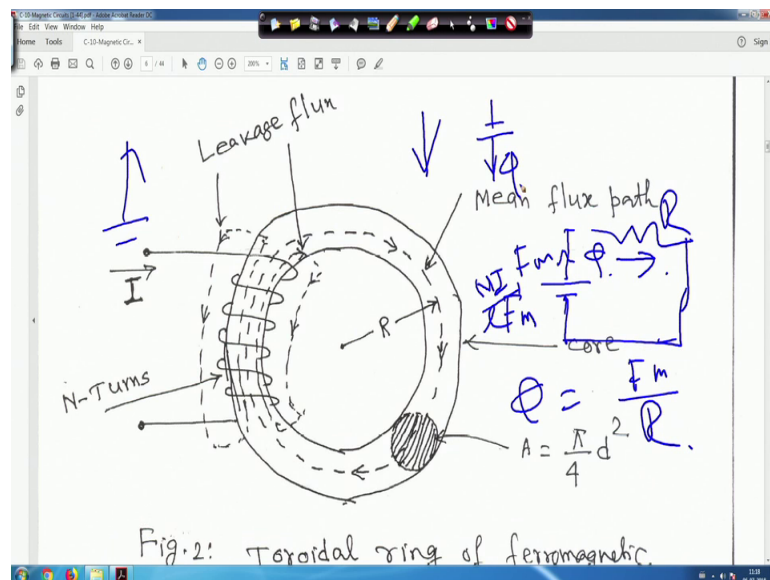 C-10-Magnetic Circuits [1-44].pdf - Adobe Acrobat Reader DC
File Edit View Window Help
Home Tools C-10-Magnetic Cir... × Sign
6 / 44 200%
Leakage flux
1
φ
Mean flux path
R
I
NI
Fm φ
Fm
R
core
N-Turns
φ = Fm / R
A = π/4 d²
Fig.2: Toroidal ring of ferromagnetic.
11:10